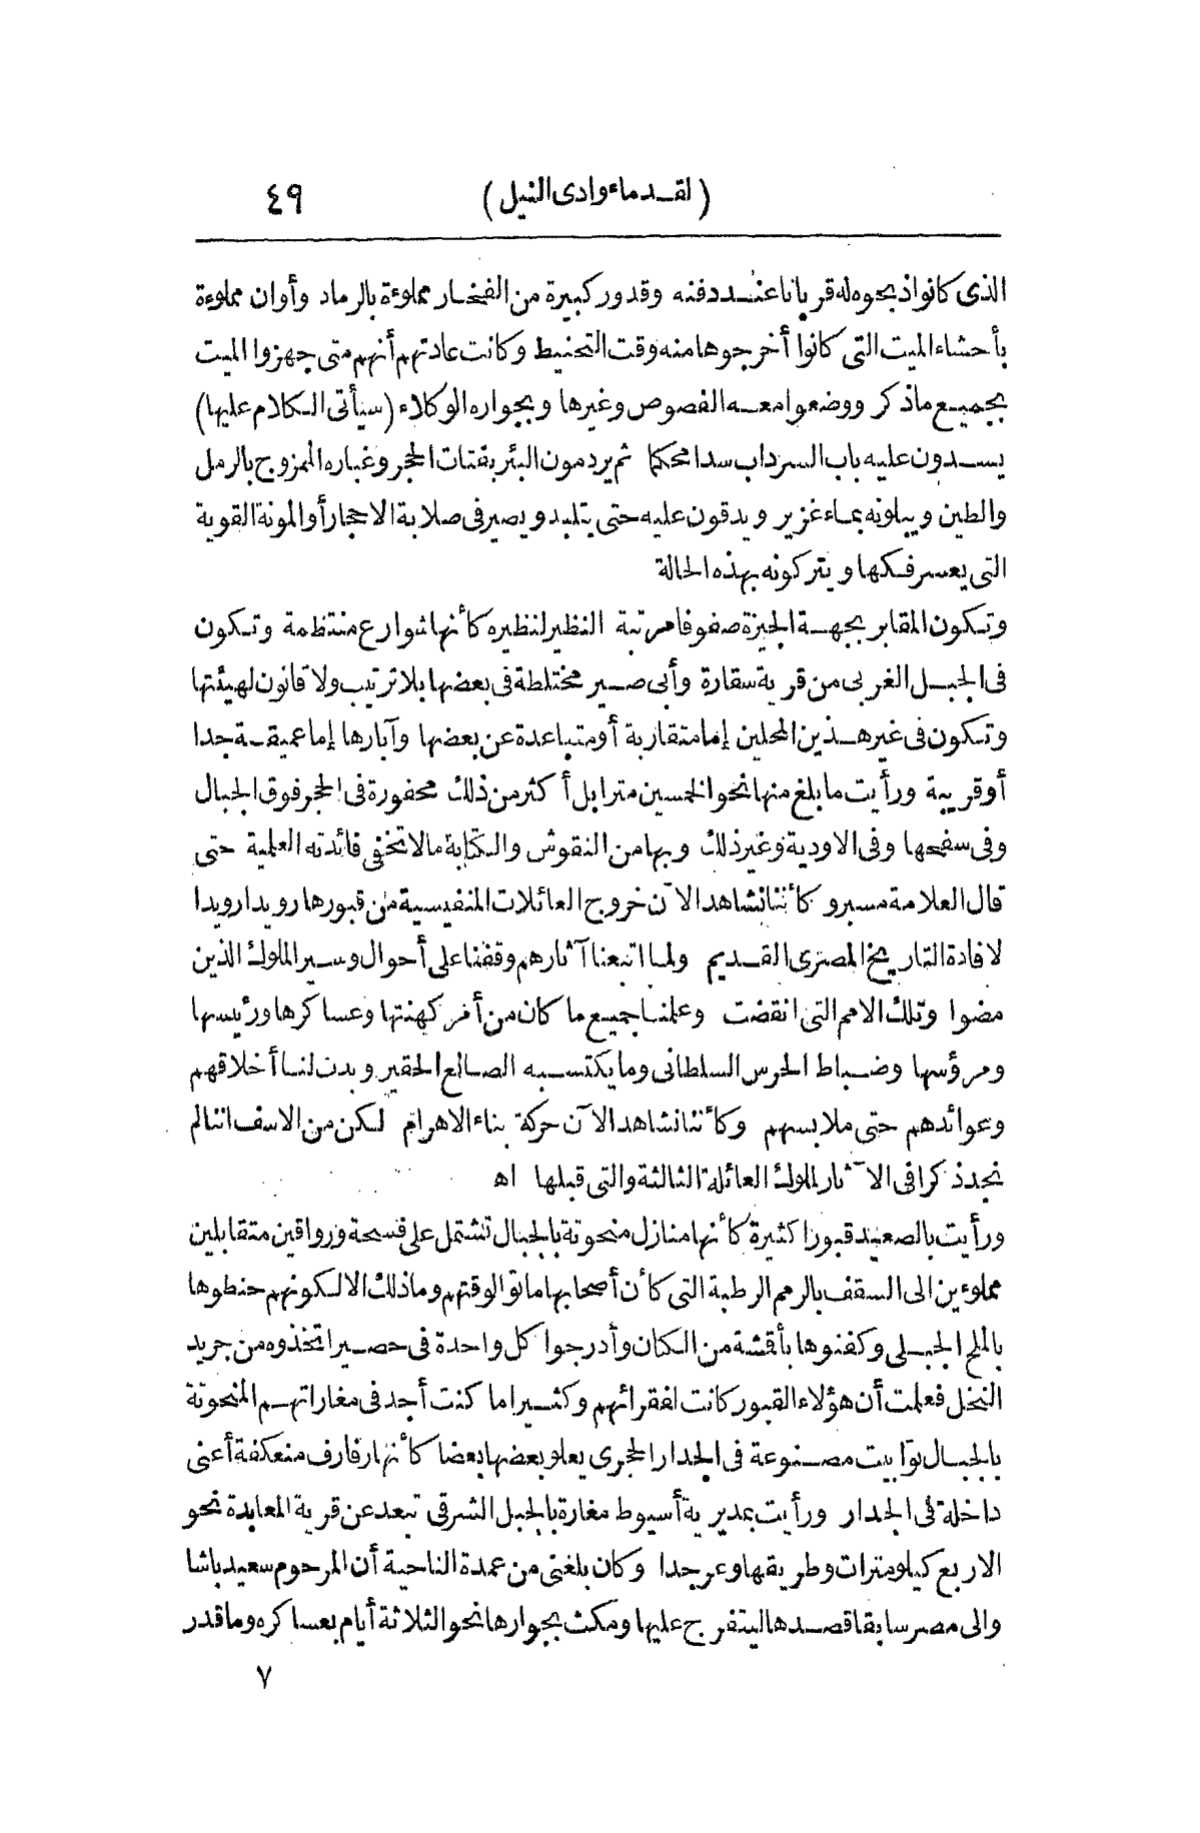 (لقدماء وادى النيل) ٤٩
الذى كانوا ذبحوه له قربانا عند دفنه وقدور كبيرة من الفخار مملوءة بالرماد وأوان مملوءة
بأحشاء الميت التى كانوا أخرجوها منه وقت التحنيط وكانت عادتهم أنهم متى جهزوا الميت
بجميع ماذكر ووضعوا معه الفصوص وغيرها وبجواره الوكلاء (سيأتى الكلام عليها)
يسدون عليه باب السرداب سدا محكما ثم يردمون البئر بفتات الحجر وغباره الممزوج بالرمل
والطين ويبلونه بماء غزير ويدقون عليه حتى يتلبد ويصير فى صلابة الاحجار أو المونة القوية
التى يعسر فكها ويتركونه بهذه الحالة
وتكون المقابر بجهة الجيزة صفوفا مرتبة النظير لنظيره كأنها شوارع منتظمة وتكون
فى الجبل الغربى من قرية سقارة وأبى صير مختلطة فى بعضها بلا ترتيب ولا قانون لهيئتها
وتكون فى غير هذين المحلين إما متقاربة أو متباعدة عن بعضها وآبارها إما عميقة جدا
أو قريبة ورأيت ما بلغ منها نحو الخمسين مترا بل أكثر من ذلك محفورة فى الحجر فوق الجبال
وفى سفحها وفى الاودية وغير ذلك وبها من النقوش والكتابة مالا تخفى فائدته العلمية حتى
قال العلامة مسبرو كأننا نشاهد الآن خروج العائلات المنفيسية من قبورها رويدا رويدا
لافادة التاريخ المصرى القديم ولما اتبعنا آثارهم وقفنا على أحوال وسير الملوك الذين
مضوا وتلك الامم التى انقضت وعلمنا جميع ما كان من أمر كهنتها وعساكرها ورئيسها
ومرؤسها وضباط الحرس السلطانى وما يكتسبه الصالع الحقير وبدت لنا أخلاقهم
وعوائدهم حتى ملابسهم وكأننا نشاهد الآن حركة بناء الاهرام لكن من الاسف اننا لم
نجد ذكرا فى الآثار لملوك العائلة الثالثة والتى قبلها اه
ورأيت بالصعيد قبورا كثيرة كأنها منازل منحوتة بالجبال تشتمل على فسحة ورواقين متقابلين
مملوءين الى السقف بالرمم الرطبة التى كأن أصحابها ماتوا لوقتهم وما ذلك الا لكونهم حنطوها
بالملح الجبلى وكفنوها بأقشة من الكتان وأدرجوا كل واحدة فى حصير اتخذوه من جريد
النخل فعلمت أن هؤلاء القبور كانت لفقرائهم وكثيرا ما كنت أجد فى مغاراتهم المنحوتة
بالجبال توابيت مصنوعة فى الجدار الحجرى يعلو بعضها بعضا كأنها رفارف منعكفة أعنى
داخلة فى الجدار ورأيت بمديرية أسيوط مغارة بالجبل الشرقى تبعد عن قرية المعابدة نحو
الاربع كيلومترات وطريقها وعر جدا وكان بلغنى من عمدة الناحية أن المرحوم سعيد باشا
والى مصر سابقا قصدها ليتفرج عليها ومكث بجوارها نحو الثلاثة أيام بعساكره وما قدر
٧